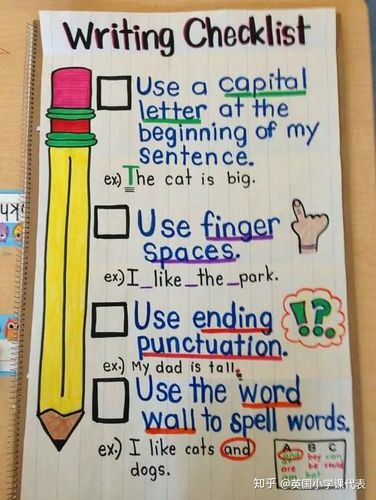 Writing Checklist
Use a capital
letter at the
beginning of my
sentence.
ex.) The cat is big.
Use finger
spaces.
ex.) I_like_the_park.
!?.
Use ending
punctuation.
ex.) My dad is tall.
Use the word
wall to spell words.
ex.) I like cats and
dogs.
A B C
and boy can
are be could
bat
知乎 @英国小学课代表